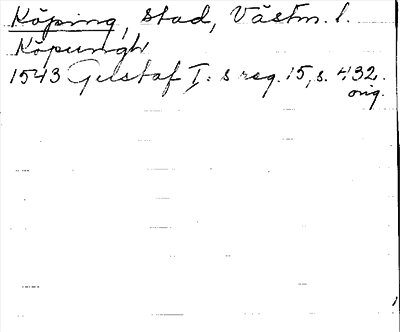 Köping, stad, Västm. l.
Köpungh
1543 Gustaf I:s reg. 15, s. 432.
orig.